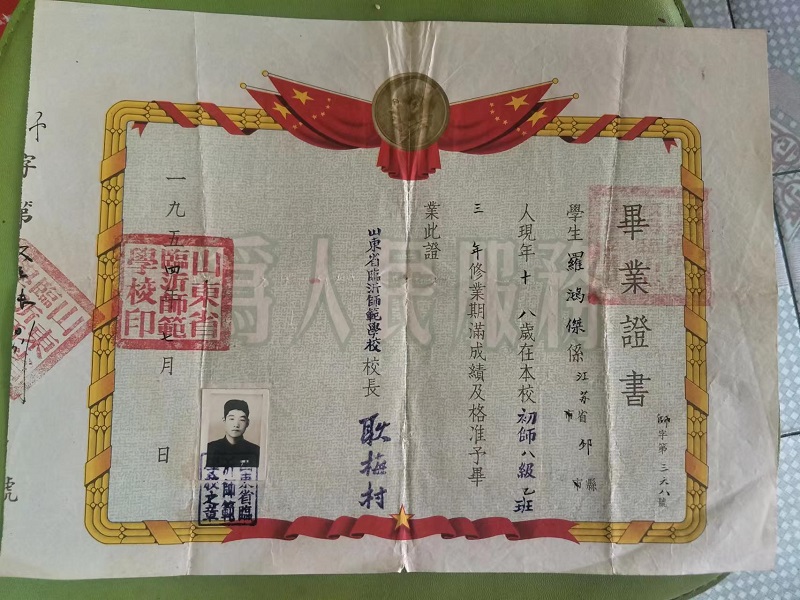 畢業證書
師字第三六八號
學生羅鴻傑係江苏省邳縣
市 市
人現年十八歲在本校初师八級乙班
三年修業期滿成績及格准予畢
業此證
山東省臨沂師範學校校長 耿梅村
一九五四年七月 日
山東省
臨沂師範
學校印
為人民服務
字第
號